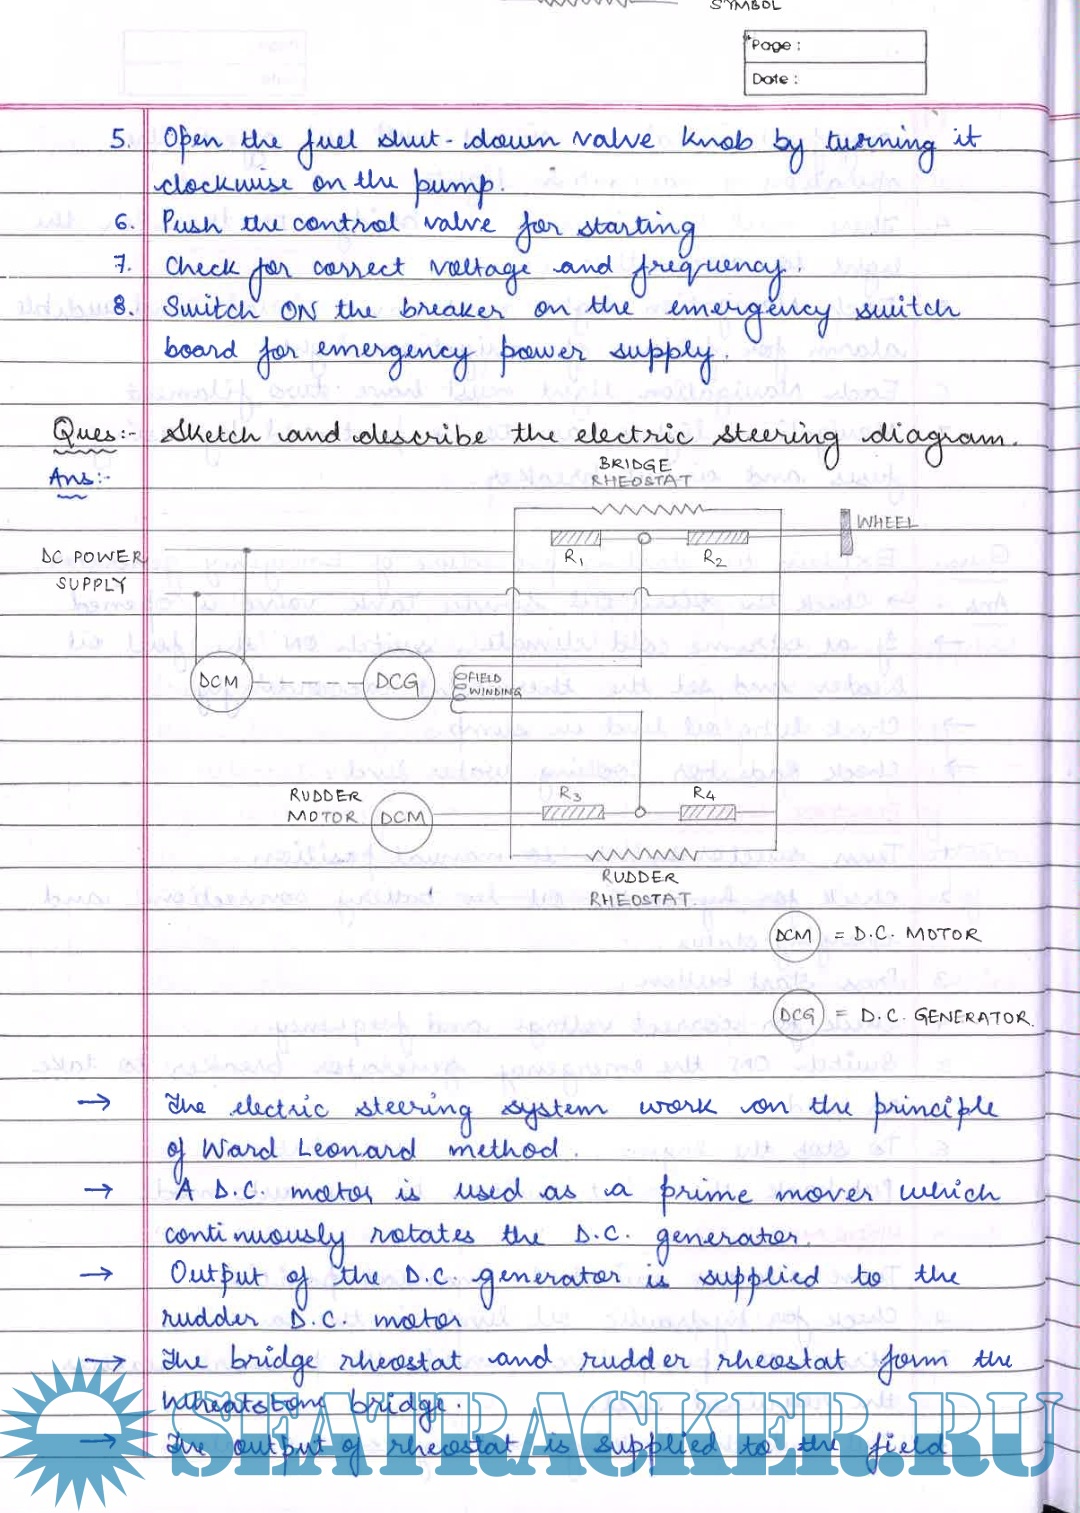 SYMBOL
Page :
Date :
5. Open the fuel shut-down valve knob by turning it
clockwise on the pump.
6. Push the control valve for starting
7. Check for correct voltage and frequency.
8. Switch ON the breaker on the emergency switch
board for emergency power supply.
Ques:- Sketch and describe the electric steering diagram.
Ans:-
BRIDGE
RHEOSTAT
WHEEL
R1 R2
DC POWER
SUPPLY
DCM DCG FIELD
WINDING
RUDDER
MOTOR DCM
R3 R4
RUDDER
RHEOSTAT.
DCM = D.C. MOTOR
DCG = D.C. GENERATOR.
→ The electric steering system work on the principle
of Ward Leonard method.
→ A D.C. motor is used as a prime mover which
continuously rotates the D.C. generator.
→ Output of the D.C. generator is supplied to the
rudder D.C. motor
→ The bridge rheostat and rudder rheostat form the
wheatstone bridge.
→ The output of rheostat is supplied to the field
SEATRACKER.RU